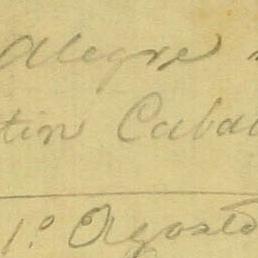 Alegre
tin Cabal
1º Agosto